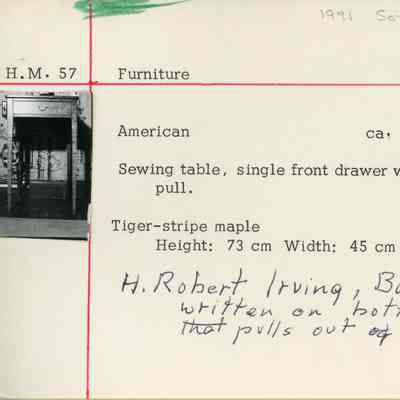 1991
H.M. 57 Furniture
American ca.
Sewing table, single front drawer w
pull.
Tiger-stripe maple
Height: 73 cm Width: 45 cm
H. Robert Irving,
written on
that pulls out of